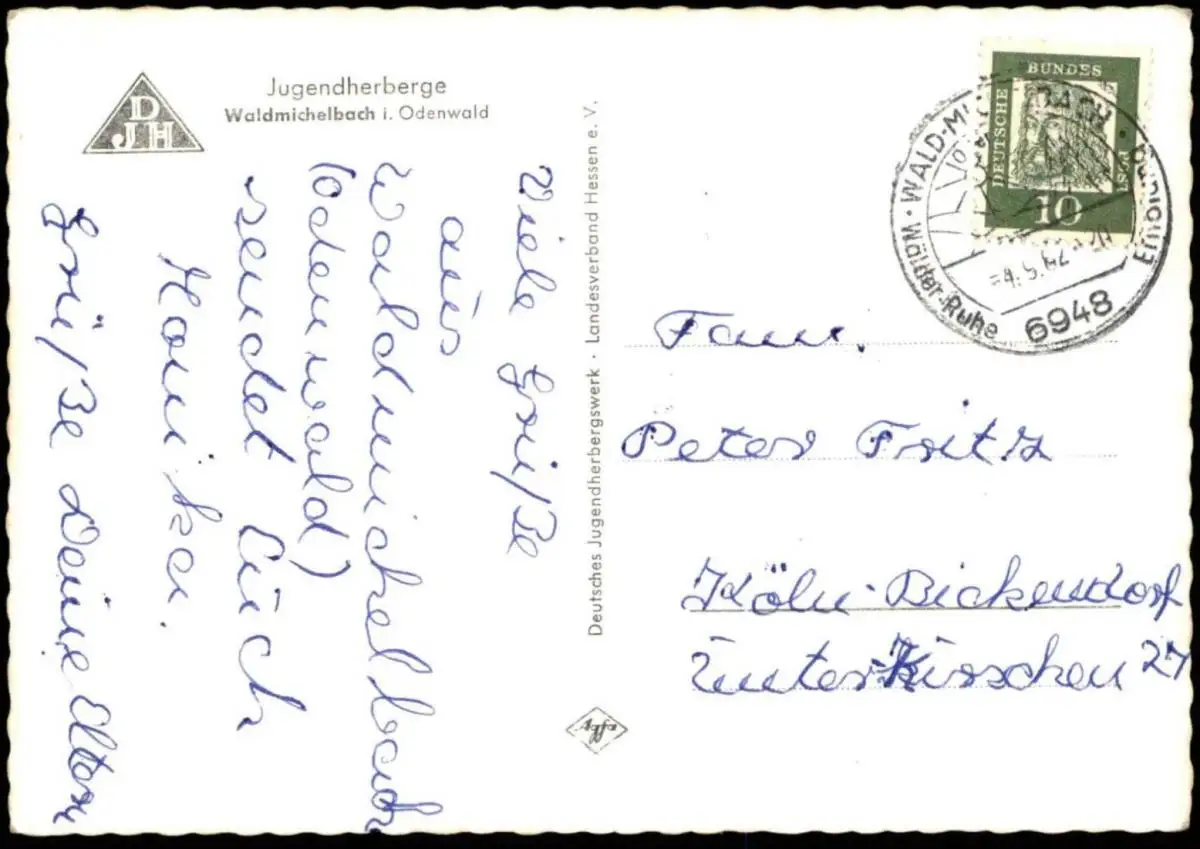 DJH
Jugendherberge
Waldmichelbach i. Odenwald
Viele Grüße
aus
Waldmichelbach
(Odenwald)
sendet Euch
Monika.
Grüße Deine Eltern
Deutsches Jugendherbergswerk · Landesverband Hessen e. V.
Agfa
DEUTSCHE BUNDESPOST
10
WALD-MICHELBACH
Wälder-Ruhe
-4.5.62
6948
Fam.
Peter Fritz
Köln-Bickendorf
Unter-Kirschen 27